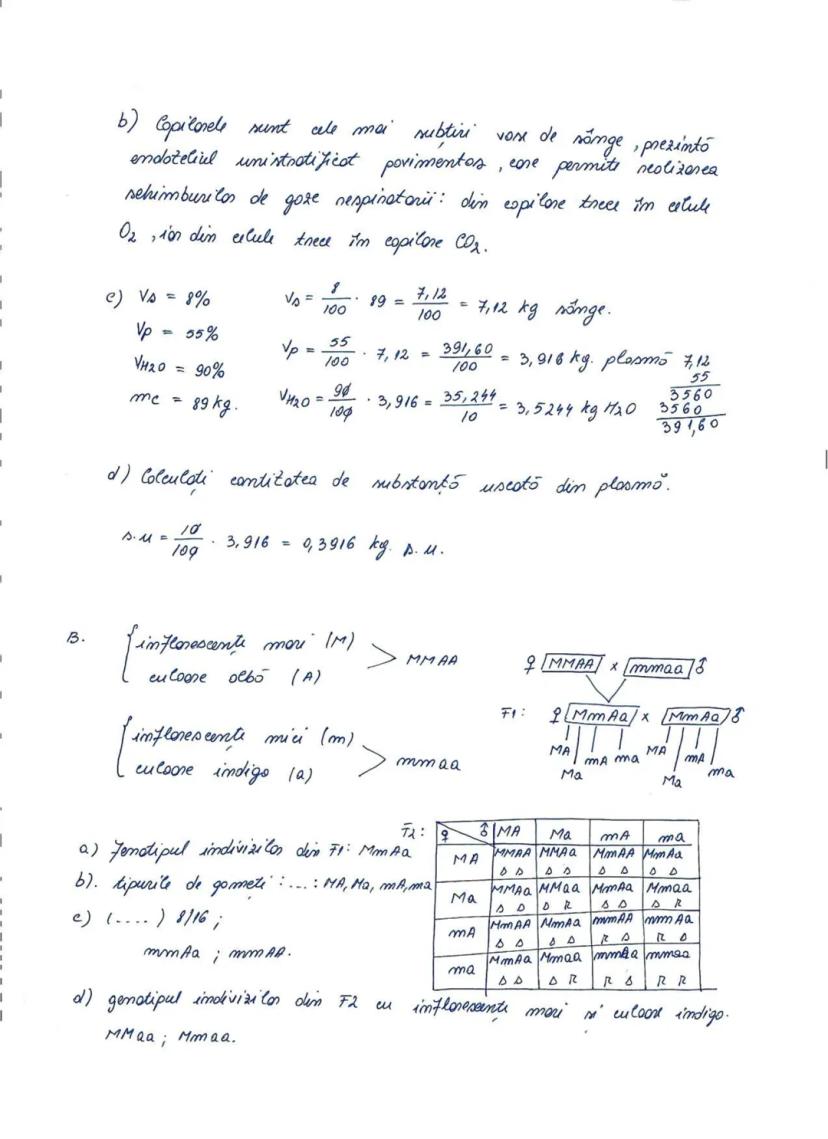 b) Capilarele sunt cele mai subțiri vase de sânge, prezintă
endoteliul unistratificat pavimentos, care permite realizarea
schimburilor de gaze respiratorii: din capilare trece în celule
O₂, iar din celule trece în capilare CO₂.
c) Vs = 8% Vs = 8/100 · 89 = 7,12/100 = 7,12 kg sânge.
Vp = 55% Vp = 55/100 · 7,12 = 391,60/100 = 3,916 kg. plasmă 7,12
VH2O = 90% 55
mc = 89 kg. VH2O = 90/100 · 3,916 = 35,244/10 = 3,5244 kg H2O 3560
3560
391,60
d) Calculați cantitatea de substanță uscată din plasmă.
s.u = 10/100 · 3,916 = 0,3916 kg. s.u.
B. inflorescențe mari (M)
culoare albă (A) > MMAA ♀ MMAA x mmaa ♂
inflorescențe mici (m) F1: ♀ MmAa x MmAa ♂
culoare indigo (a) > mmaa MA Ma mA ma MA Ma mA ma
F2: ♀ ♂ MA Ma mA ma
a) Fenotipul indivizilor din F1: MmAa MA MMAA MMAa MmAA MmAa
D D D D D D D D
b). tipurile de gameți: ...: MA, Ma, mA, ma Ma MMAa MMaa MmAa Mmaa
D D D R D D D R
c) (....) 8/16; mA MmAA MmAa mmAA mmAa
D D D D R D R D
mmAa; mmAA. ma MmAa Mmaa mmAa mmaa
D D D R R D R R
d) genotipul indivizilor din F2 cu inflorescențe mari și culoare indigo.
MMaa; Mmaa.